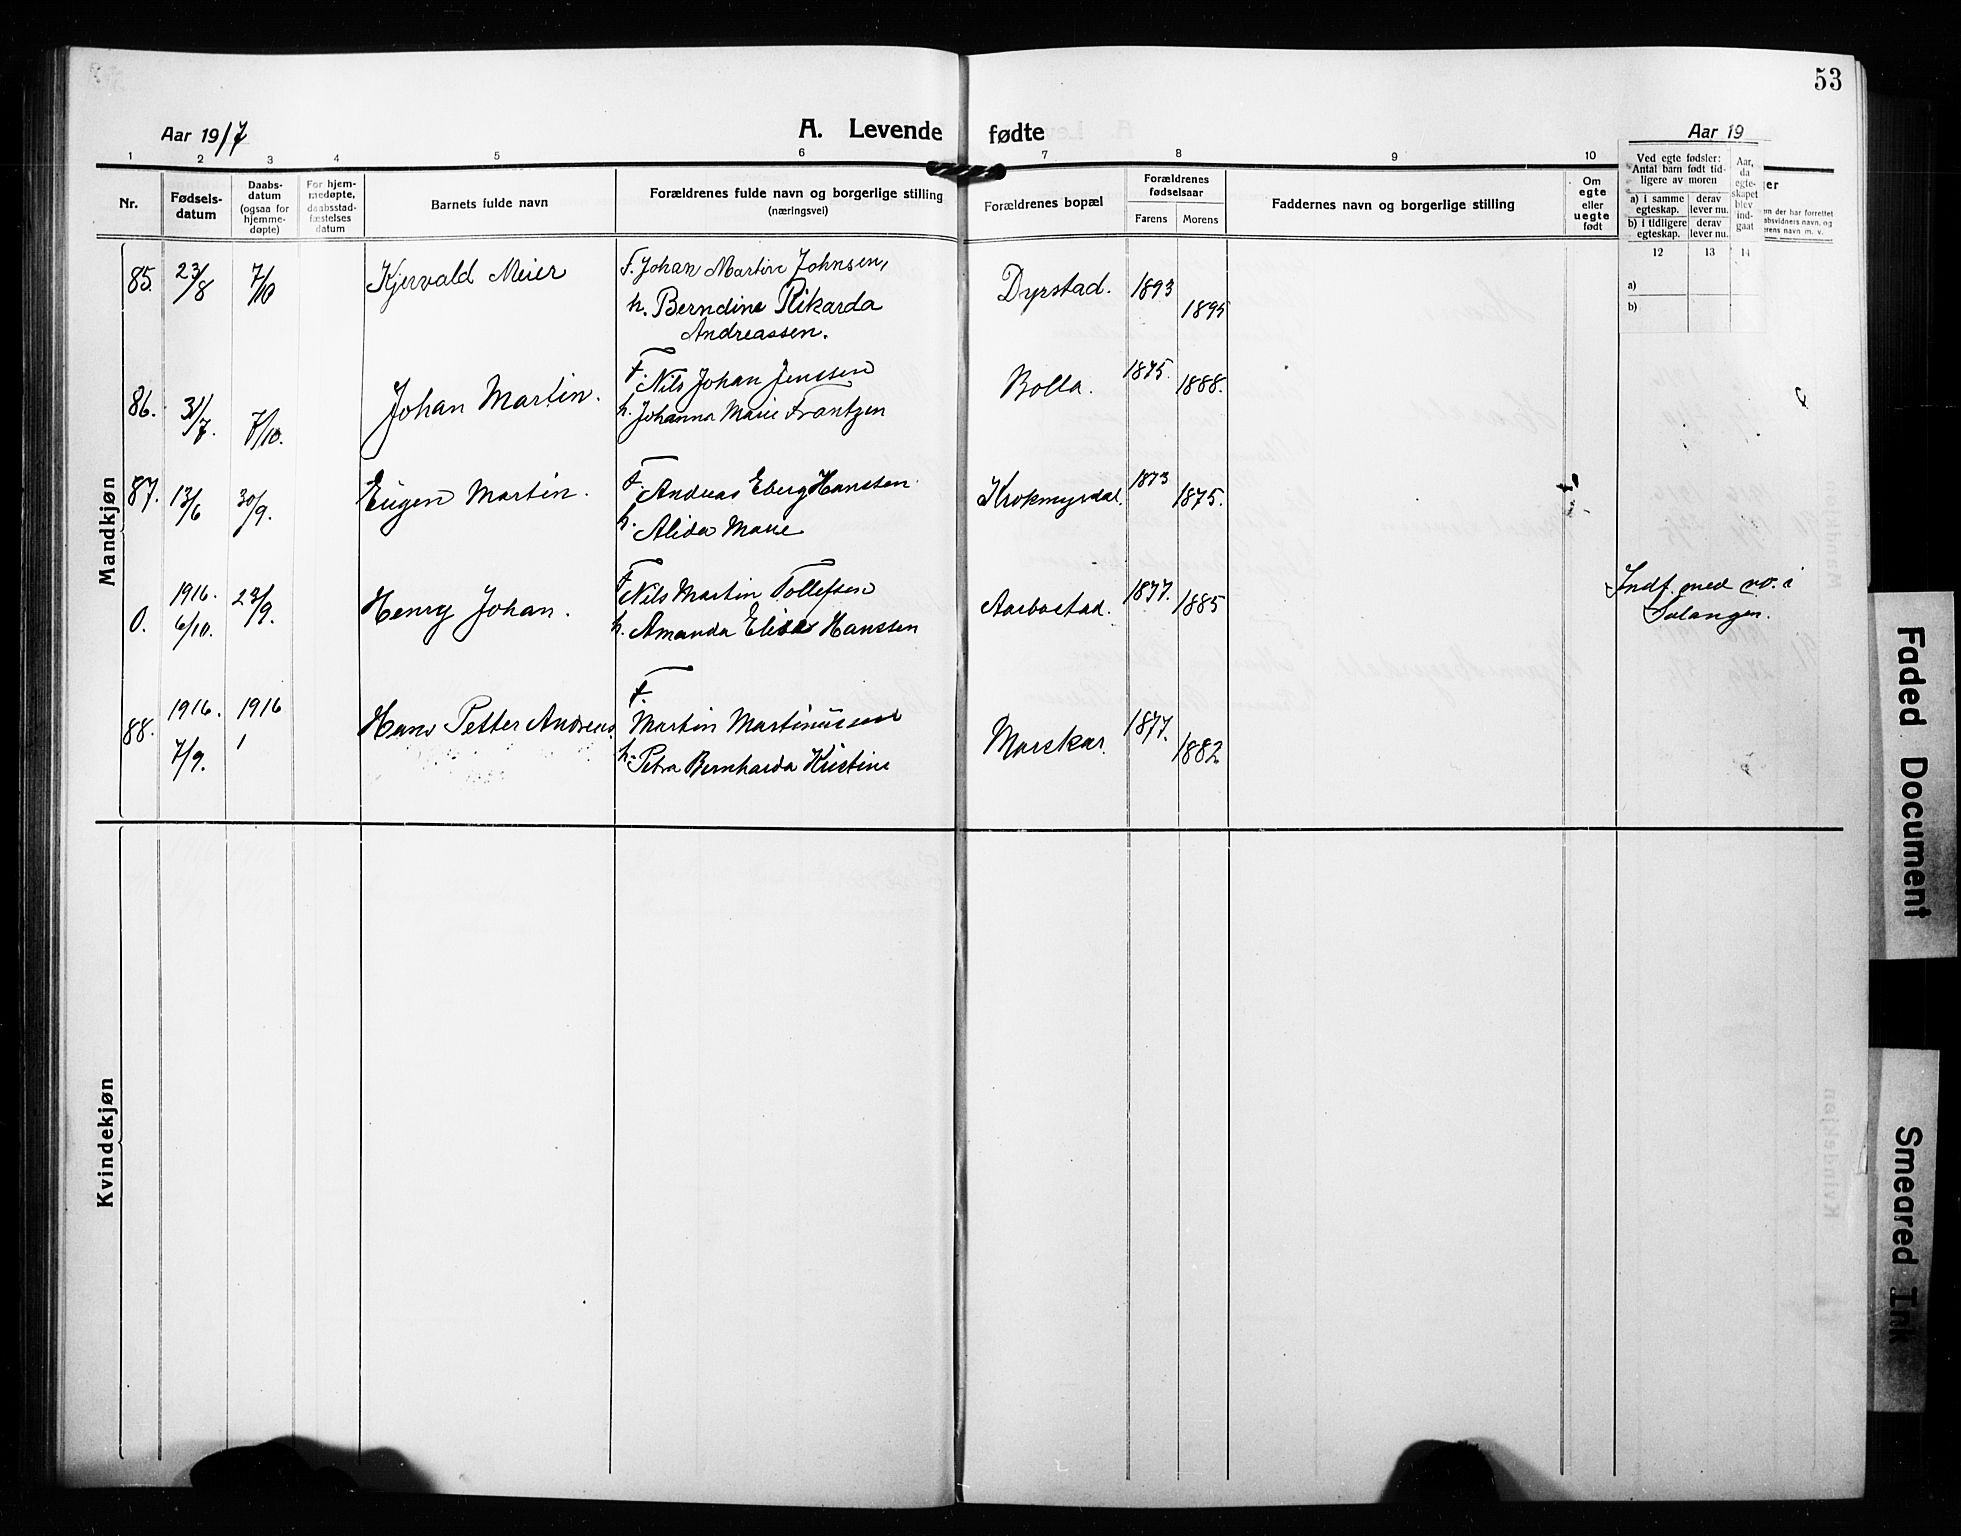 53
Aar 1917
A. Levende fødte
Aar 19
1 2 3 4 5 6 7 8 9 10
Nr.
Fødsels-
datum
Daabs-
datum
(ogsaa for
hjemme-
døpte)
For hjem-
medøpte,
daabsstad-
fæstelses
datum
Barnets fulde navn
Forældrenes fulde navn og borgerlige stilling
(næringsvei)
Forældrenes bopæl
Forældrenes
fødselsaar
Farens Morens
Faddernes navn og borgerlige stilling
Om
egte
eller
uegte
født
Ved egte fødsler:
Antal barn født tid-
ligere av moren
a) i samme
egteskap.
derav
lever nu.
b) i tidligere
egteskap.
derav
lever nu.
Aar,
da
egte-
skapet
blev
ind-
gaat
12 13 14
a)
b)
ger
m der har forrettet
absvidners navn, og
erens navn m. v.
Mandkjøn
85. 23/8 7/10 Kjervald Meier
F. Johan Martin Johnsen,
h. Berndine Rikarda
Andreassen.
Dyrstad. 1893 1895
86. 31/7. 7/10. Johan Martin.
F. Nils Johan Jenssen
h. Johanna Marie Frantzen
Bolla. 1875. 1888.
87. 13/6 30/9. Eugen Martin.
F. Andreas Eberg Hanssen
h. Alida Marie
Krokmyrdal. 1873 1875.
0. 1916. 6/10. 23/9. Henry Johan.
F. Nils Martin Tollefsen
h. Amanda Elise Hanssen
Aarbostad. 1877. 1885
Indf. med no. i
Salangen.
88. 1916. 7/9. 1916 Hans Petter Andreas
F.
Martin Martinussen
h. Petra Bernharda Kristine
Marskar. 1877. 1882
Kvindekjøn
Faded Document
Smeared Ink